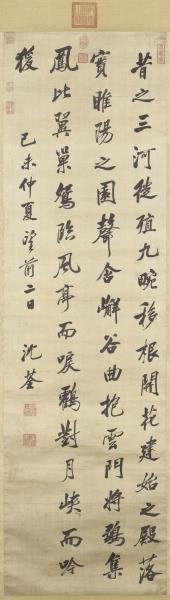 昔之三河徙殖九畹移根開花建始之殿落
實睢陽之園聲含嶰谷曲抱雲門將鶵集
鳳比翼巢鴛臨風亭而唳鶴對月峽而吟
猨
己未仲夏望前二日
沈荃